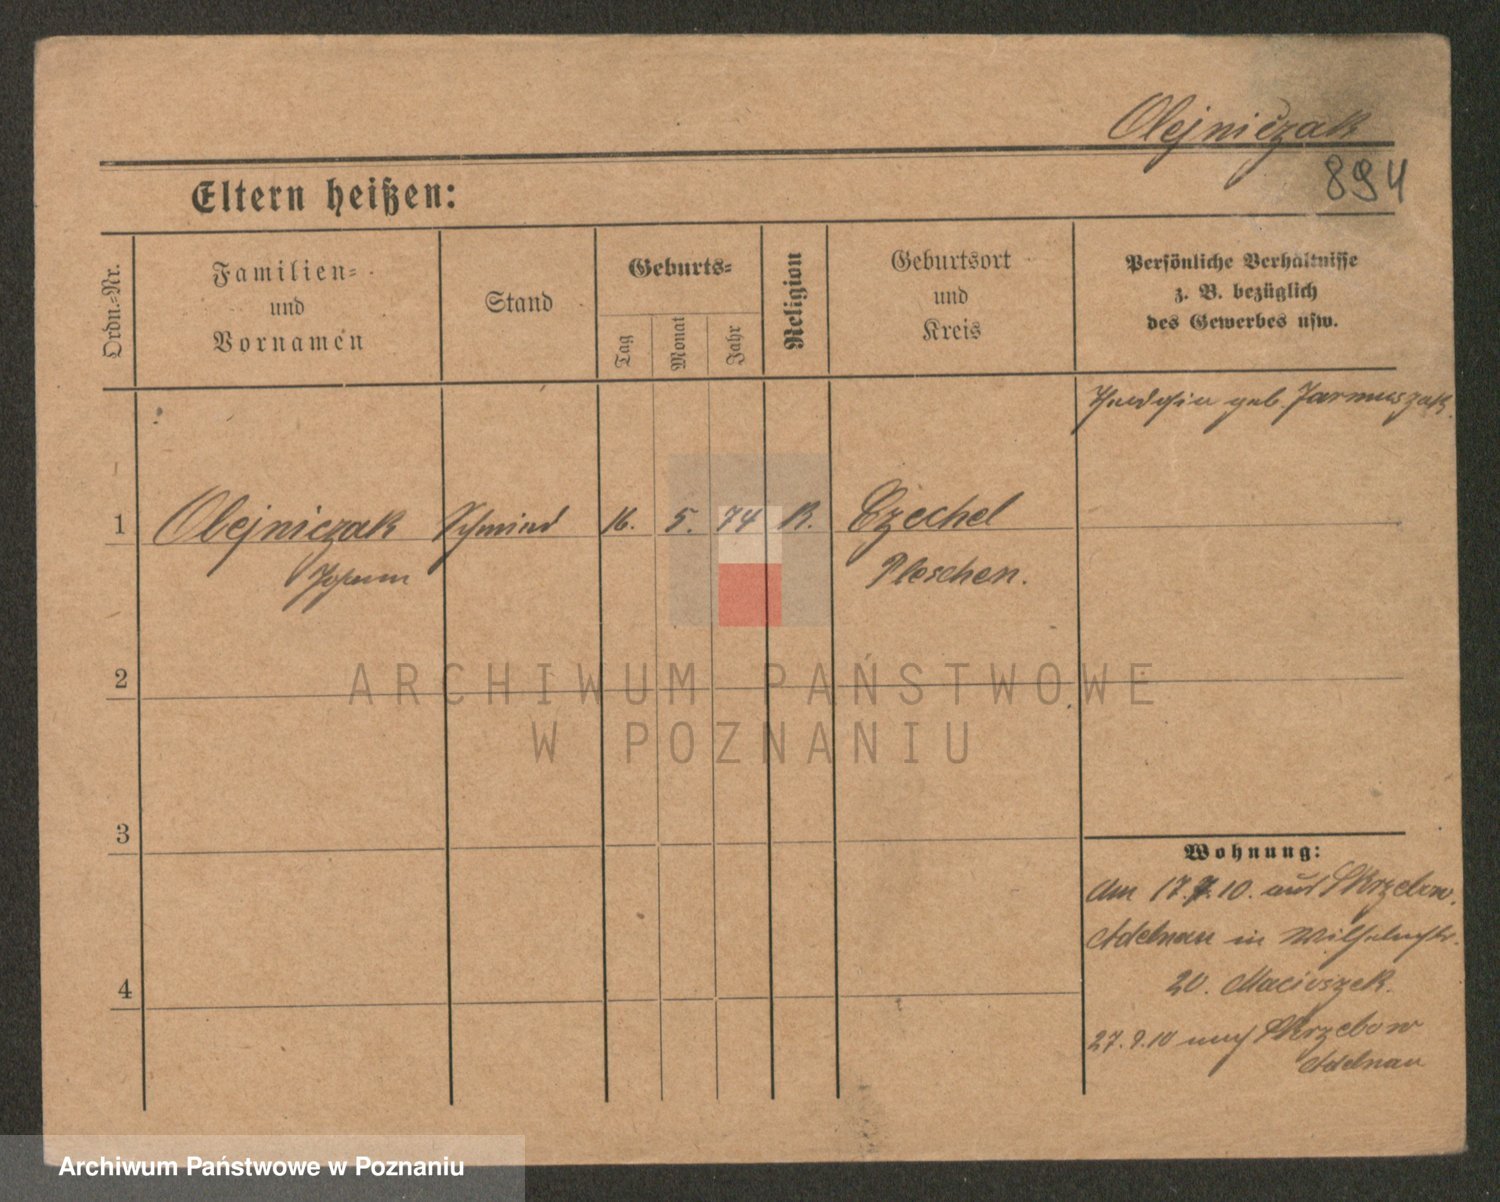 Olejniczak
894
Eltern heißen:
Ordn.-Nr.
Familien-
und
Vornamen
Stand
Geburts-
Tag
Monat
Jahr
Religion
Geburtsort
und
Kreis
Persönliche Verhältnisse
z. B. bezüglich
des Gewerbes usw.
geb. Jarmuszak.
1 Olejniczak Schmied 16. 5. 74 K. Czechel
Johann Pleschen.
2
3
4
Wohnung:
Am 17.7.10. aus Skrzebow.
Adelnau in Wilhelmstr.
20. Macioszek.
27.9.10 nach Skrzebow
Adelnau
ARCHIWUM PAŃSTWOWE
W POZNANIU
Archiwum Państwowe w Poznaniu